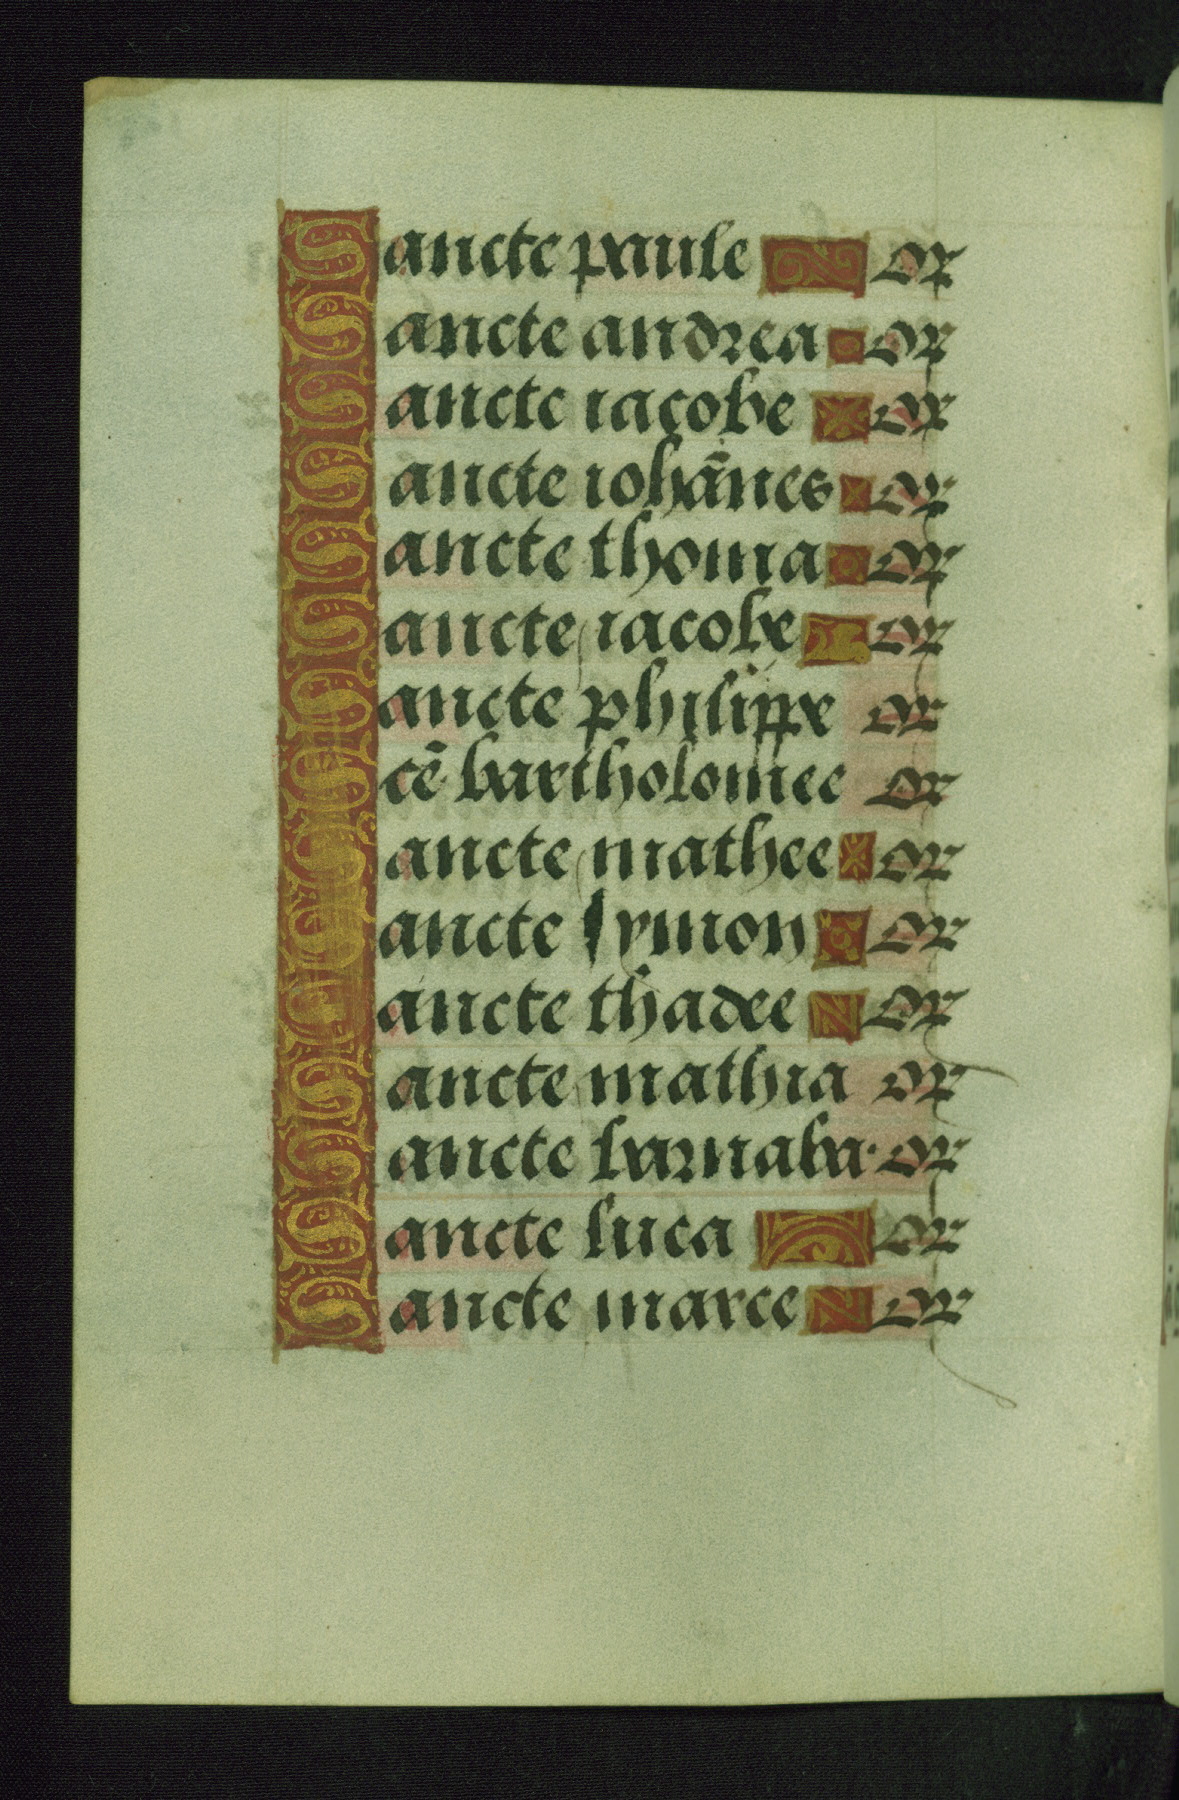 Sancte paule or
Sancte andrea or
Sancte iacobe or
Sancte iohānes or
Sancte thoma or
Sancte iacobe or
Sancte philippe or
Scē bartholomee or
Sancte mathee or
Sancte symon or
Sancte thadee or
Sancte mathia or
Sancte barnaba· or
Sancte luca or
Sancte marce or